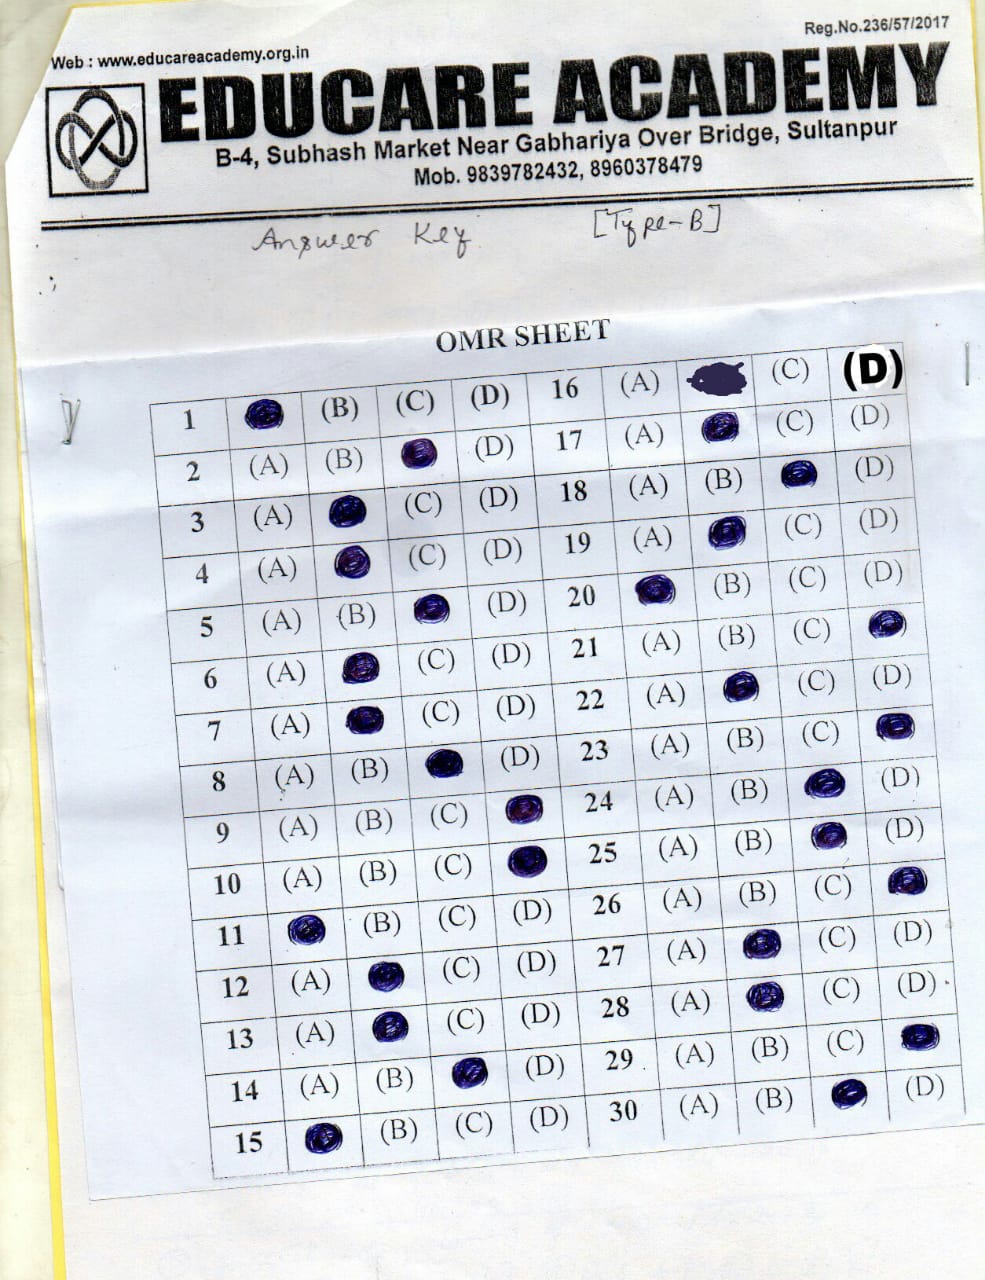 Reg.No.236/57/2017
Web : www.educareacademy.org.in
EDUCARE ACADEMY
B-4, Subhash Market Near Gabhariya Over Bridge, Sultanpur
Mob. 9839782432, 8960378479
Answer Key [Type-B]
OMR SHEET
1 (B) (C) (D) 16 (A) (C) (D)
2 (A) (B) (D) 17 (A) (C) (D)
3 (A) (C) (D) 18 (A) (B) (D)
4 (A) (C) (D) 19 (A) (C) (D)
5 (A) (B) (D) 20 (B) (C) (D)
6 (A) (C) (D) 21 (A) (B) (C)
7 (A) (C) (D) 22 (A) (C) (D)
8 (A) (B) (D) 23 (A) (B) (C)
9 (A) (B) (C) 24 (A) (B) (D)
10 (A) (B) (C) 25 (A) (B) (D)
11 (B) (C) (D) 26 (A) (B) (C)
12 (A) (C) (D) 27 (A) (C) (D)
13 (A) (C) (D) 28 (A) (C) (D)
14 (A) (B) (D) 29 (A) (B) (C)
15 (B) (C) (D) 30 (A) (B) (D)